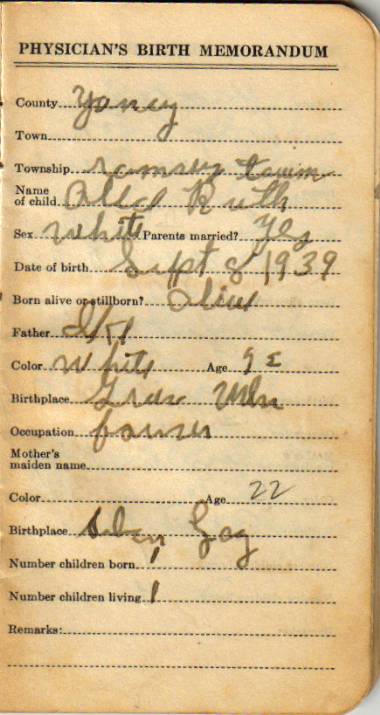 PHYSICIAN'S BIRTH MEMORANDUM
County Yancy
Town
Township ramsey town
Name
of child Ruth
Sex White Parents married? Yes
Date of birth Sept 8 1939
Born alive or stillborn? Alive
Father
Color White Age
Birthplace
Occupation farmer
Mother's
maiden name
Color Age 22
Birthplace
Number children born 1
Number children living 1
Remarks: